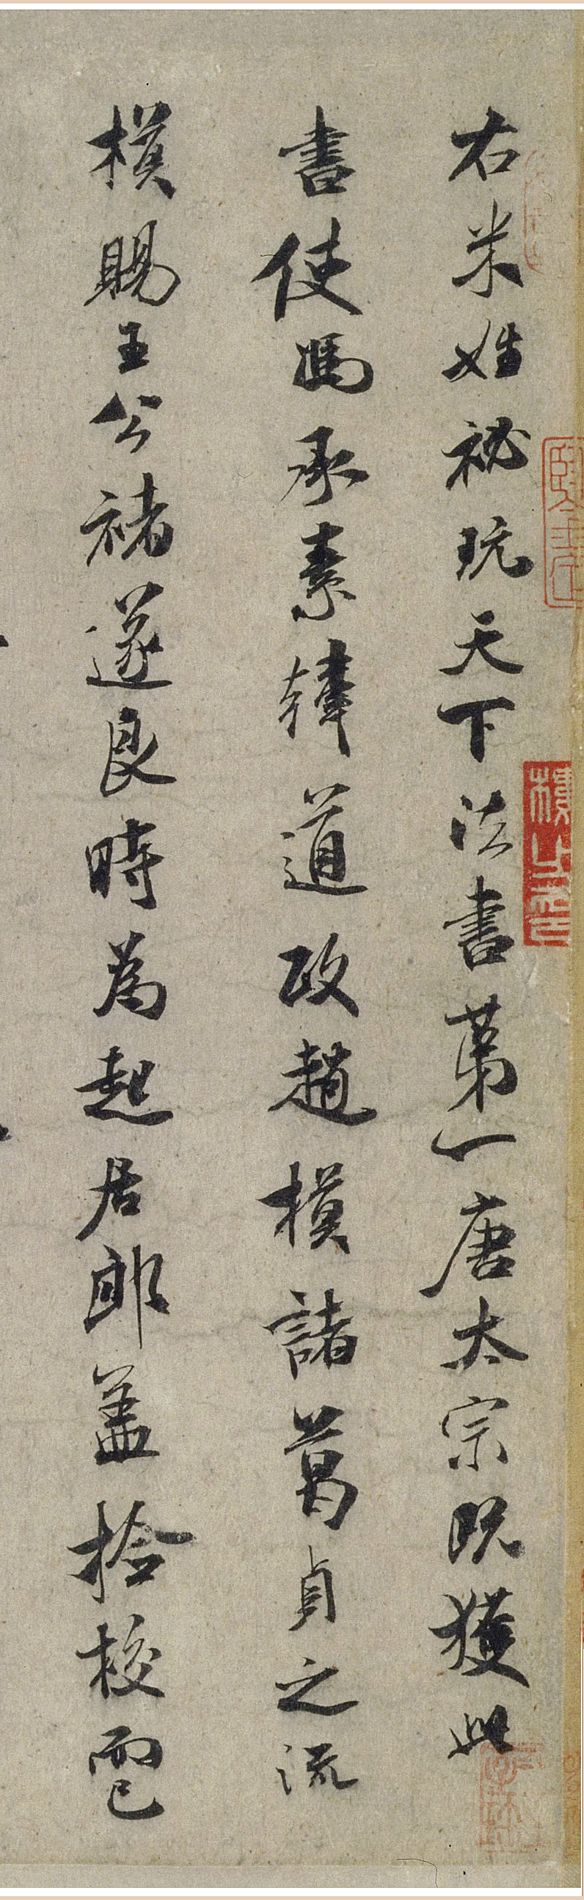 右米姓祕玩天下法書第一唐太宗既獲此
書使馮承素韓道政趙模諸葛貞之流
模賜王公褚遂良時為起居郎蓋捡校而已